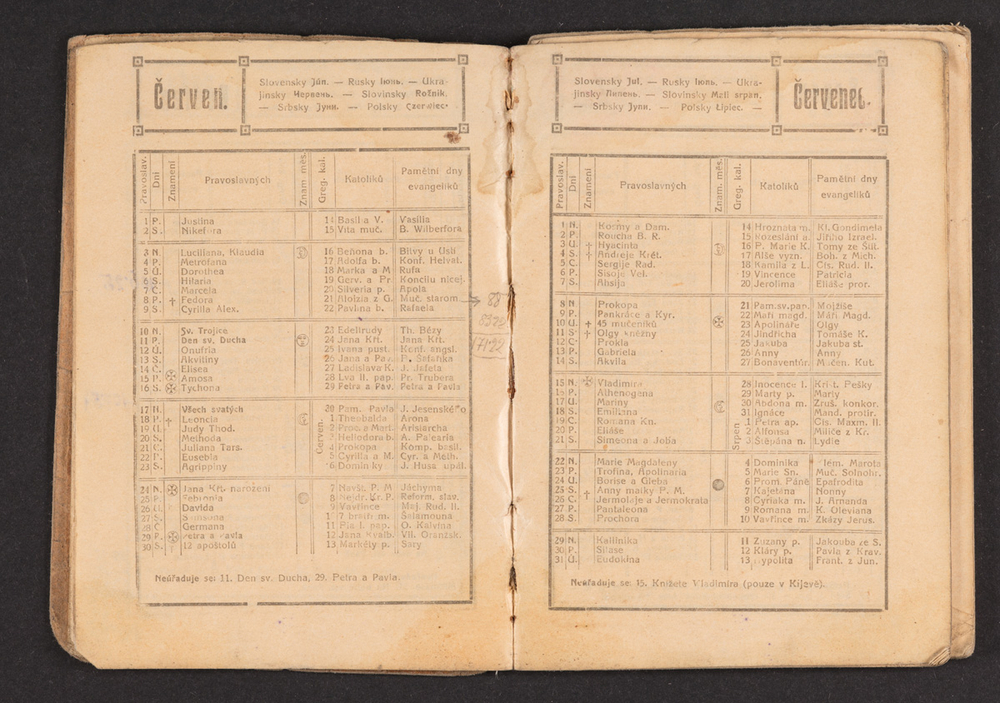 Červen.
Slovensky Jún. — Rusky Іюнь. — Ukra-
jinsky Червень. — Slovinsky Rožnik.
— Srbsky Јуни. — Polsky Czerwiec.
Pravoslav. Dni Znamení Pravoslavných Znam. měs. Greg. kal. Katolíků Pamětní dny evangelíků
1 P. Justina 14 Basil a V. Vasilia
2 S. Nikefora 15 Víta muč. B. Wilberfora
3 N. Luciliana, Klaudia 16 Beňona b. Bitvy u Ústí
4 P. Metrofana 17 Adolfa b. Konf. Helvet.
5 Ú. Dorothea 18 Marka a M. Rufa
6 S. Hilaria 19 Gerv. a Pr. Koncilu nicej.
7 Č. Marcela 20 Silveria p. Apola
8 P. † Fedora 21 Aloizia z G. Muč. starom.
9 S. Cyrilla Alex. 22 Pavlina b. Rafaela
10 N. Sv. Trojice 23 Edeltrudy Th. Bézy
11 P. Den sv. Ducha 24 Jana Křt. Jana Křt.
12 Ú. Onufria 25 Ivana pust. Konf. angsl.
13 S. Akviliny 26 Jana a Pav.
14 Č. Elisea 27 Ladislava K. J. Jafeta
15 P. Amosa 28 Lva II. pap. Pr. Trubera
16 S. Tychona 29 Petra a Pav. Petra a Pavla
17 N. Všech svatých 30 Pam. Pavla J. Jesenského
18 P. † Leoncia Červen. 1 Theobalda Arona
19 Ú. Judy Thod. 2 Prok. a Mart. Aristarcha
20 S. Methoda 3 Heliodora b. A. Palearia
21 Č. Juliana Tars. 4 Prokopa Komp. basil.
22 P. Eusebia 5 Cyrilla a M. Cyr. a Meth.
23 S. Agrippiny 6 Dominiky J. Husa upál.
24 N. Jana Křt. narození 7 Navšt. P. M. Jáchyma
25 P. Febronia 8 Nejdr. Kr. P. Reform. slav.
26 Ú. Davida 9 Vavřince Maj. Rud. II.
27 S. 10 7 bratří m. Šalamouna
28 Č. Germana 11 Pia I. pap. O. Kalvína
29 P. Petra a Pavla 12 Jana Gvalb. Vil. Oranžsk.
30 S. 12 apoštolů 13 Markéty p. Sáry
Neúřaduje se: 11. Den sv. Ducha, 29. Petra a Pavla.
17122
Červenec.
Slovensky Jul. — Rusky Іюль. — Ukra-
jinsky Липень. — Slovinsky Mali srpan.
— Srbsky Јули. — Polsky Lipiec. —
Pravoslav. Dni Znamení Pravoslavných Znam. měs. Greg. kal. Katolíků Pamětní dny evangelíků
1 N. Kosmy a Dam. 14 Hroznata m. Kl. Gondimela
2 P. Roucha B. R. 15 Rozeslání a. Jiřího Izrael.
3 Ú. † Hyacinta 16 P. Marie K. Tomy ze Štít.
4 S. † Andreje Krét. 17 Alše vyzn. Boh. z Mich.
5 Č. Sergije Rad. 18 Kamila z L. Cís. Rud. II.
6 P. Sisoje Vel. 19 Vincence Patricia
7 S. Absija 20 Jerolima Eliáše pror.
8 N. Prokopa 21 Pam.sv.pap. Mojžíše
9 P. Pankráce a Kyr. 22 Maří magd. Máří Magd.
10 Ú. † 45 mučeníků 23 Apolináře Olgy
11 S. † Olgy kněžny 24 Jindřicha Tomáše K.
12 Č. Prokla 25 Jakuba Jakuba st.
13 P. Gabriela 26 Anny Anny
14 S. Akvila 27 Bonaventúr. Mučen. Kut.
15 N. Vladimíra 28 Inocence I. Krišt. Pešky
16 P. Athenogena 29 Marty p. Marty
17 Ú. Mariny 30 Abdona m. Zruš. konkor.
18 S. Emiliana 31 Ignáce Mand. protir.
19 Č. Romana Kn. Srpen 1 Petra ap. Cís. Maxm. II.
20 P. Eliáše 2 Alfonsa Miliče z Kr.
21 S. Simeona a Joba 3 Štěpána n. Lydie
22 N. Marie Magdaleny 4 Dominika Klem. Marota
23 P. Trofina, Apolinaria 5 Marie Sn. Muč. Solnohr.
24 Ú. Borise a Gleba 6 Prom. Páně Epafrodita
25 S. † Anny matky P. M. 7 Kajetána Nonny
26 Č. Jermolaje a Jermokrata 8 Cyriaka m. J. Arnanda
27 P. Pantaleona 9 Romana m. K. Oleviana
28 S. Prochora 10 Vavřince m. Zkázy Jerus.
29 N. Kallinika 11 Zuzany p. Jakouba ze S.
30 P. Silase 12 Kláry p. Pavla z Krav.
31 Ú. Eudokina 13 Hypolita Frant. z Jun.
Neúřaduje se: 15. Knížete Vladimíra (pouze v Kijevě).